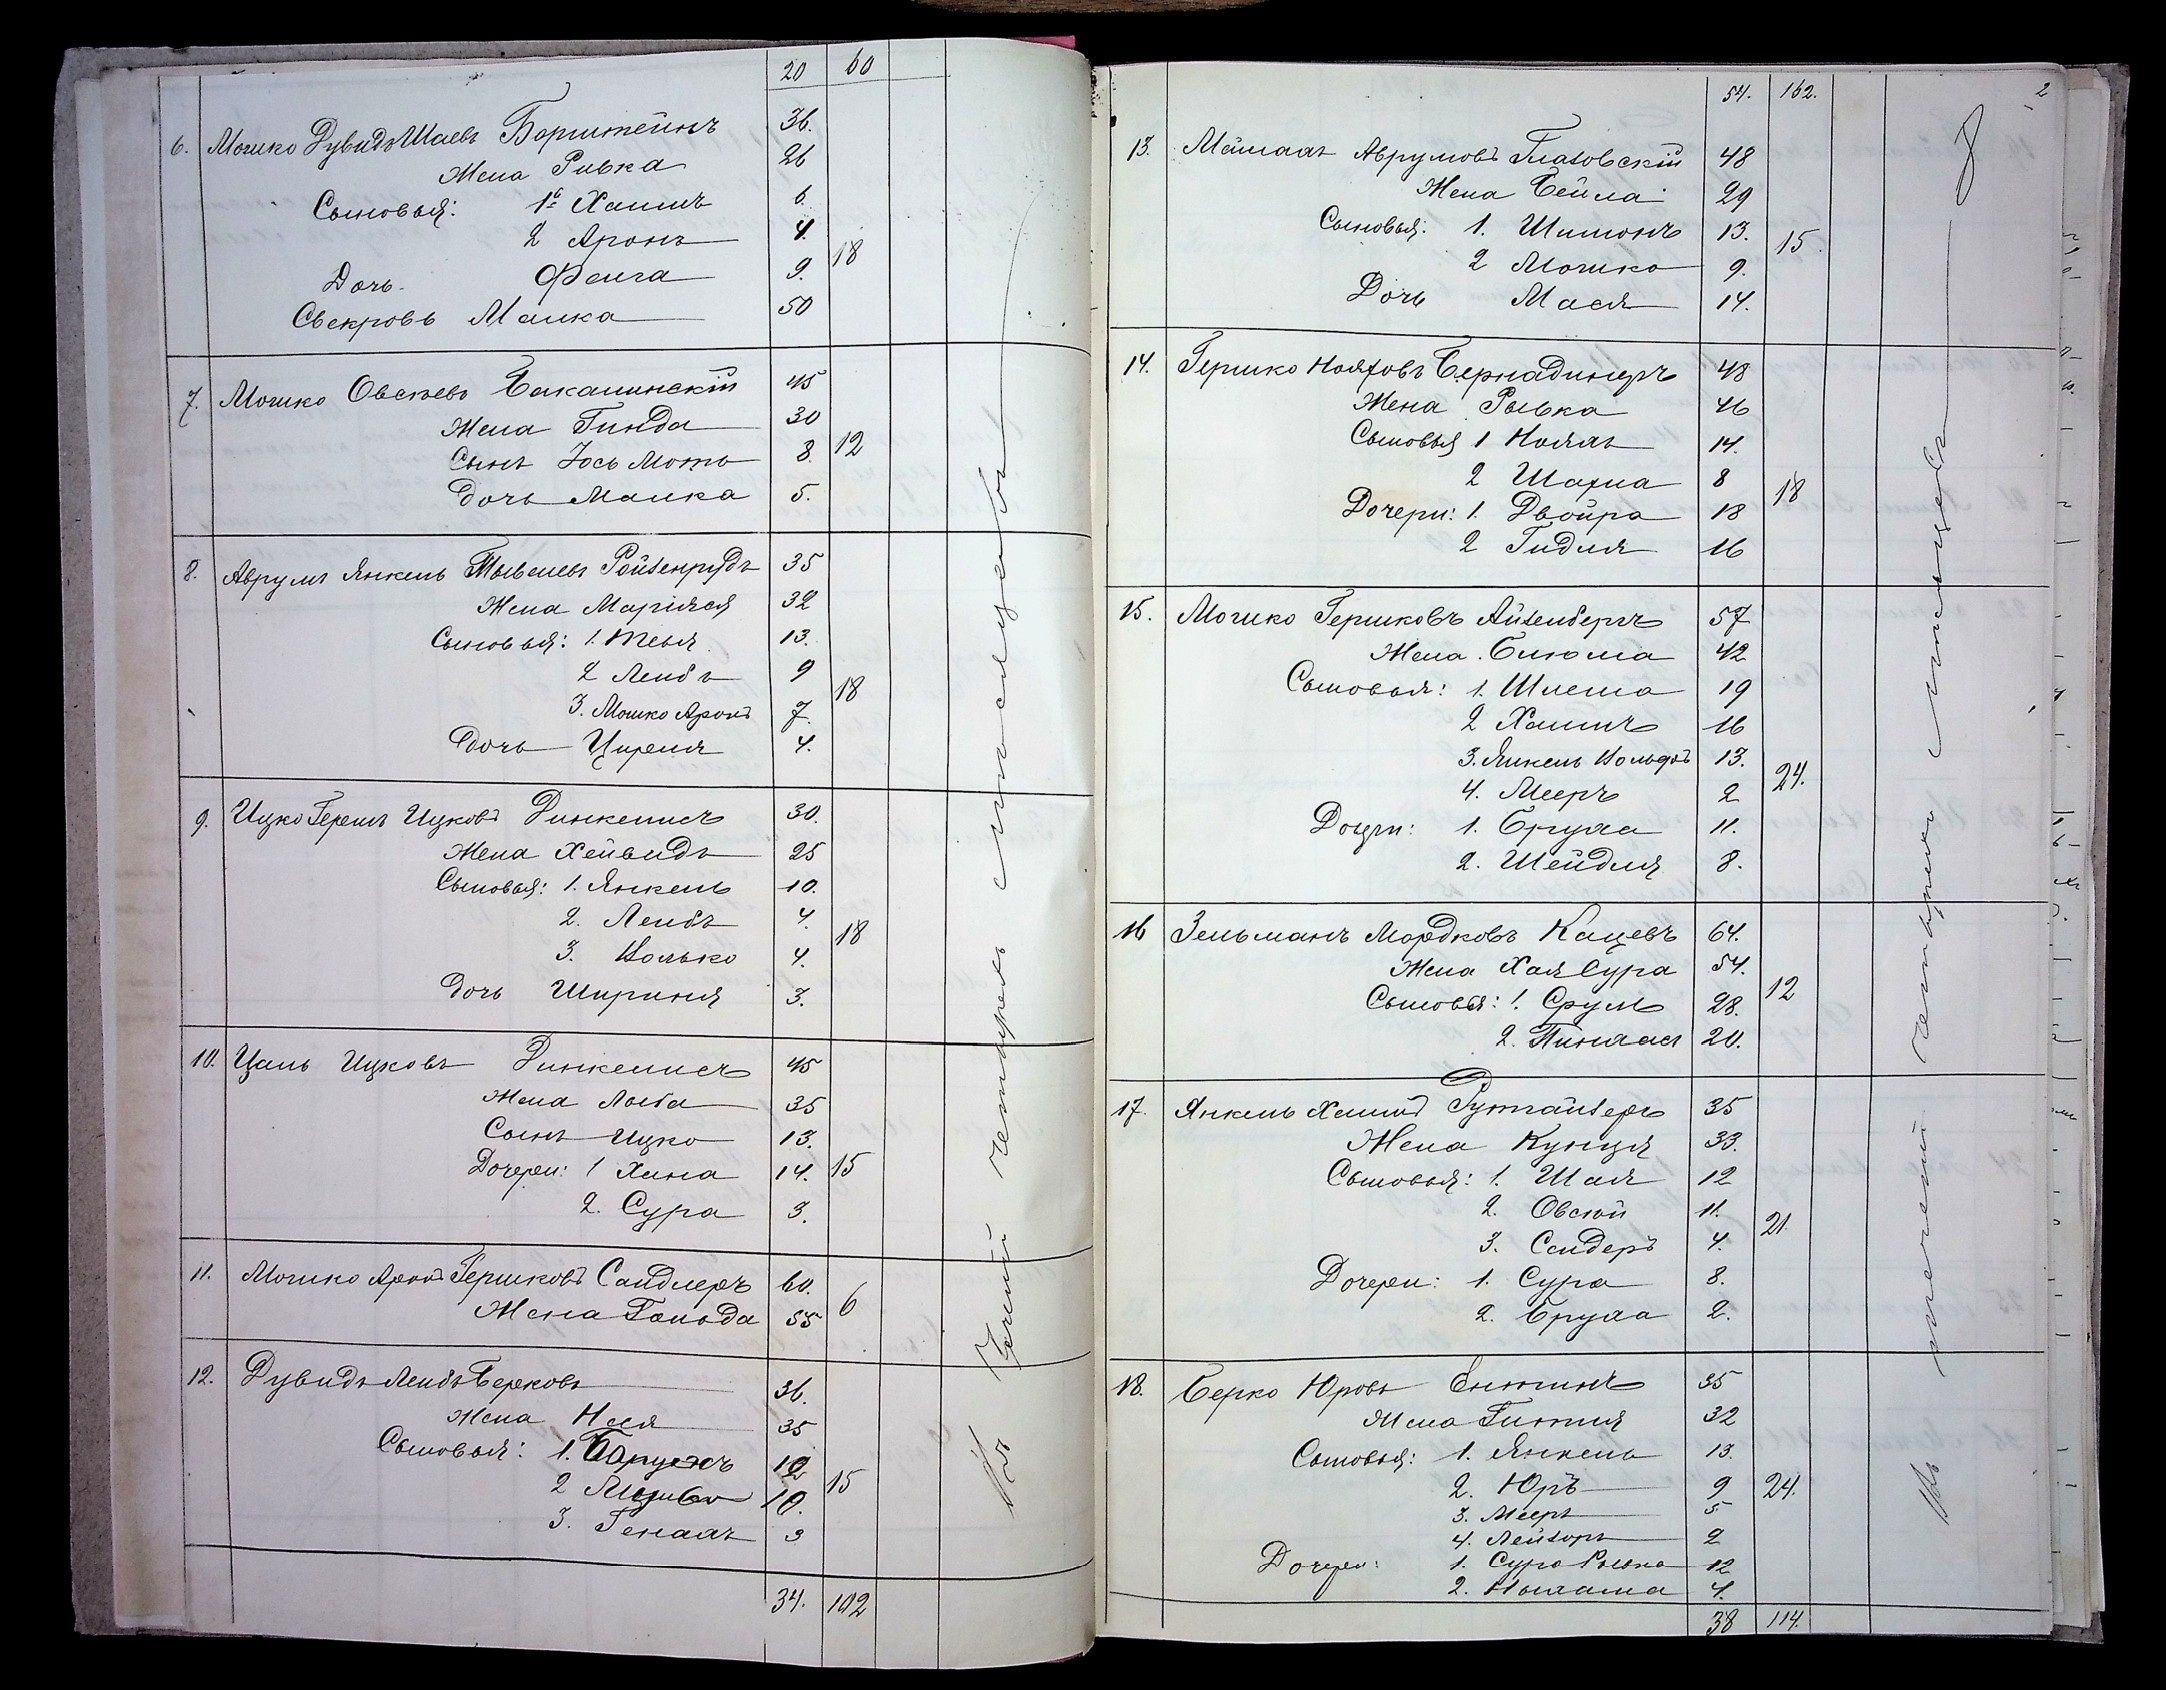 20 60
6. Мошко Дувидъ Шаевъ Борштейнъ 36.
Жена Ривка 26
Сыновья: 1й Хаимъ 6
2 Аронъ 4. 18
Дочь Фейга 9.
Свекровь Малка 50
7. Мошко Овсеевъ Бакалинскій 45
Жена Гинда 30
Сынъ Іось Моть 8. 12
Дочь Малка 5.
8. Аврумъ Янкель Ройзенрудъ 35
Жена Маріяся 32
Сыновья: 1. Тевя 13.
2 Лейбъ 9 18
3. Мошко Аронъ 7.
Дочь Циреля 4.
9. Ицко Гершъ Ицковъ Динкелисъ 30.
Жена Хейвидъ 25
Сыновья: 1. Янкель 10.
2. Лейбъ 4. 18
3. Волько 4.
Дочь Шириня 3.
10. Цаль Ицковъ Динкелисъ 45
Жена Лыба 35
Сынъ Ицко 13.
Дочери: 1 Хана 14. 15
2. Сура 3.
11. Мошко Аронъ Гершковъ Сандлеръ 60. 6
Жена Гольда 55
12. Дувидъ Лейбъ Берковъ 36.
Жена Неся 35
Сыновья: 1. Борухъ 12 15
2 10.
3. Генахъ 3
34. 102
На четырехъ мѣсяцевъ
54. 162. 2
13. Аврумовъ Глазовскій 48
Жена Бейла 29
Сыновья: 1. Шимонъ 13. 15.
2 Мошко 9.
Дочь Мася 14.
14. Гершко Нояховъ Бернадинеръ 48
Жена Рывка 46
Сыновья 1 Нояхъ 14.
2 Шахна 8 18
Дочери: 1. Двойра 18
2 Гидля 16
15. Мошко Гершковъ Айзенбергъ 57
Жена Блюма 42
Сыновья: 1. Шлема 19
2 Хаимъ 16
3. Янкель Вольфъ 13. 24.
4. Мееръ 2
Дочери: 1. Бруха 11.
2. Шейдля 8.
16 Зельманъ Мордковъ Кацевъ 64.
Жена Хая Сура 54. 12
Сыновья: 1. Срулъ 28.
2. Пинхасъ 20.
17. Янкель Хаимовъ Гутгайзеръ 35
Жена Кунця 33.
Сыновья: 1. Шая 12
2. Овсѣй 11. 21.
3. Сендеръ 4.
Дочери: 1. Сура 8.
2. Бруха 2.
18. Берко Юровъ Ентинъ 35
Жена Гитля 32
Сыновья: 1. Янкель 13.
2. Юръ 9 24.
3. Мееръ 5
4. Лейзоръ 2
Дочери: 1. Сура Рывка 12
2. Нехама 4.
38 114.
Въ теченіи четырехъ мѣсяцевъ